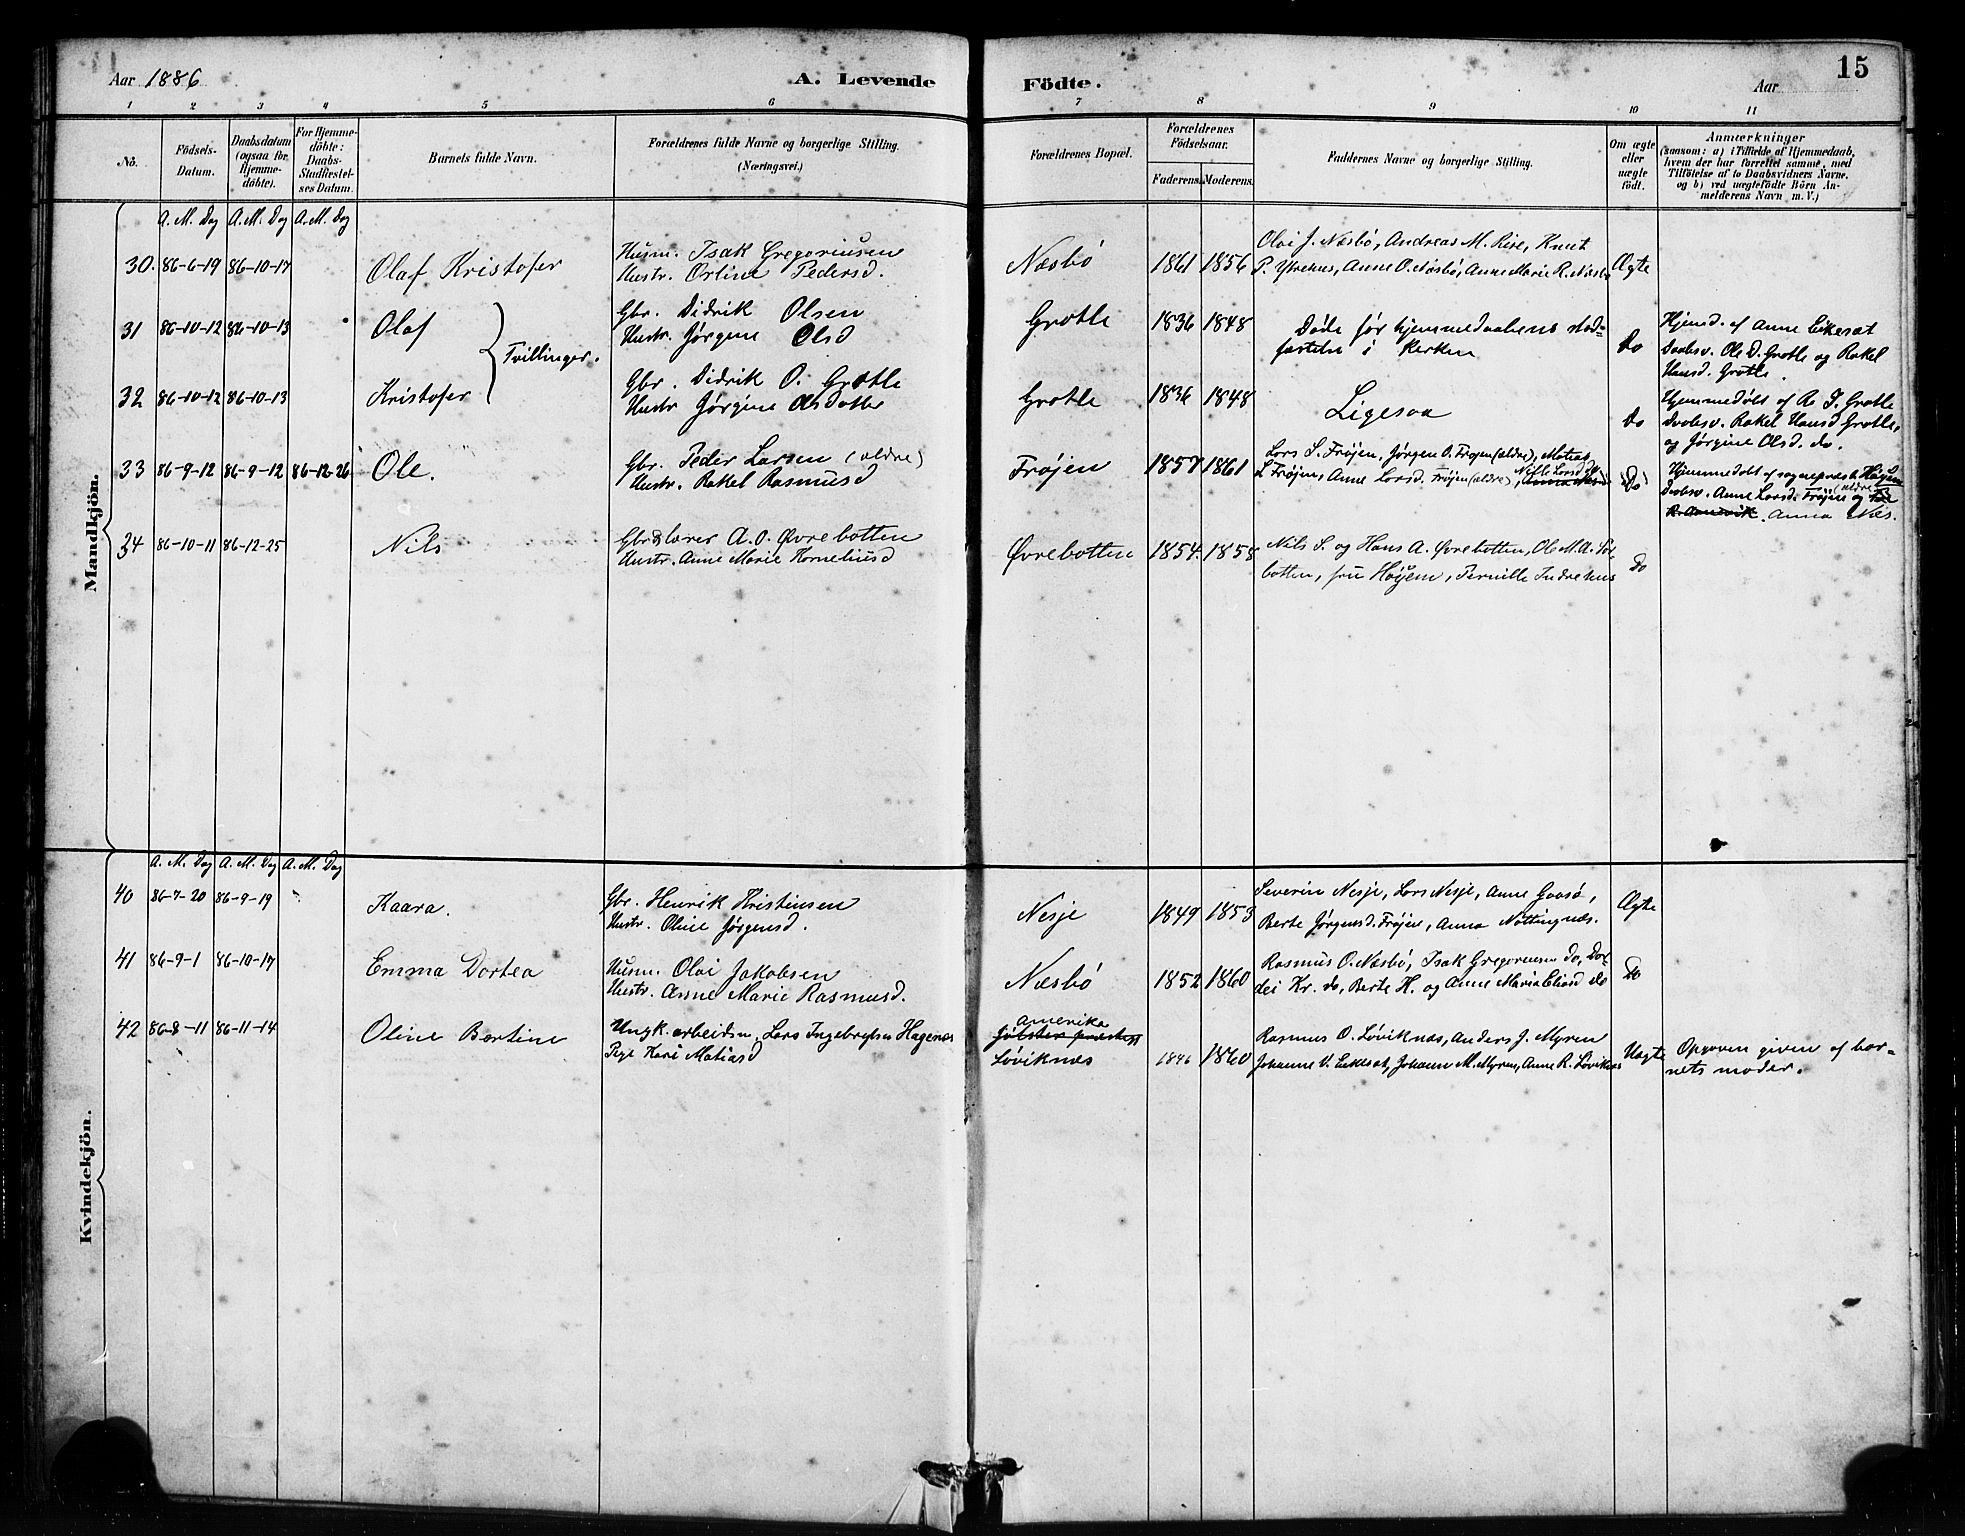 Aar 1886
A. Levende
Födte.
Aar
15
1 2 3 4 5 6 7 8 9 10 11
No.
Födsels-
Datum.
Daabsdatum
(ogsaa for
Hjemme-
döbte).
For Hjemme-
döbte:
Daabs-
Stadfæstel-
ses Datum.
Barnets fulde Navn.
Forældrenes fulde Navne og borgerlige Stilling.
(Næringsvei.)
Forældrenes Bopæl.
Forældrenes
Födselsaar.
Faderens. Moderens.
Faddernes Navne og borgerlige Stilling.
Om ægte
eller
uægte
födt.
Anmærkninger
(saasom: a) i Tilfælde af Hjemmedaab,
hvem der har forrettet samme, med
Tilföielse af to Daabsvidners Navne.
og b) ved uægtefödte Börn An-
melderens Navn m. V.)
Mandkjön.
A. M. Dag A. M. Dag A. M. Dag
30. 86-6-19 86-10-17 Olaf Kristofer
Husm. Isak Gregoriusen
Hustr. Orline Pedersd.
Næsbø 1861 1856
Oloi J. Næsbø, Andreas M. Rise, Knut
P. Ytrehus, Anne O. Næsbø, Anne Marie R. Næsbø
Ægte
31 86-10-12 86-10-13 Olaf
Tvillinger.
Gbr. Didrik Olsen
Hustr. Jørgine Olsd
Grotle 1836 1848
Døde før hjemmedaabens stad-
fæstelse i kirken
Do
Hjemd. af Anne Eikeset
Daabsv. Ole D. Grotle og Rakel
Hansd. Grotle.
32 86-10-12 86-10-13 Kristofer
Gbr. Didrik O. Grotle
Hustr. Jørgine Olsdotter
Grotle 1836 1848
Ligesaa
Do
Hjemmedøbt af R. J. Grotle
Daabsv. Rakel Hansd Grotle,
og Jørgine Olsd. do.
33 86-9-12 86-9-12 86-12-26 Ole.
Gbr. Peder Larsen (ældre)
Hustr. Rakel Rasmusd
Frøjen 1857 1861
Lars S. Frøjen, Jørgen O. Frøjen (ældre), Matias
L Frøjen, Anne Larsd. Frøjen (ældre),
Do
Hjemmedøbt af sogneprest Høyem
Daabsv. Anne Larsd. Frøjen (ældre) og
Anna Næs.
34 86-10-11 86-12-25 Nils
Gbr & lærer A. O. Øvrebotten
Hustr. Anne Marie Korneliusd
Øvrebotten 1854. 1858
Nils S. og Hans A. Øvrebotten, Ole M. A.
botten, fru Høyem, Pernille Indrehus
Do
Kvindekjön.
A. M. Dag A. M. Dag A. M. Dag
40 86-7-20 86-9-19 Kaara.
Gbr. Henrik Kristensen
Hustr. Oline Jørgensd.
Nesje 1849 1853
Severin Nesje, Lars Nesje, Anne Gaasø,
Berte Jørgensd. Frøjen, Anna Nøttingnæs.
Ægte
41 86-9-1 86-10-17 Emma Dortea
Husm. Oloi Jakobsen
Hustr. Anne Marie Rasmusd.
Næsbø 1852 1860
Rasmus O. Næsbø, Isak Gregoriusen Do, Dor-
dei Kr. do, Berte H. og Anne Maria Eliasd do
Do
42 86-8-11 86-11-14 Oline Bertine
Ungk. arbeidsm. Lars Ingebrigtsen Hagenæs
Pige Kari Matiasd
Amerika
Løviknæs 1846 1860
Rasmus O. Løviknæs, Anders J. Myren
Johanne V. Eikeset, Johann M. Myren, Anne R. Løviknæs
Uægte
Opgaven given af bar-
nets moder.